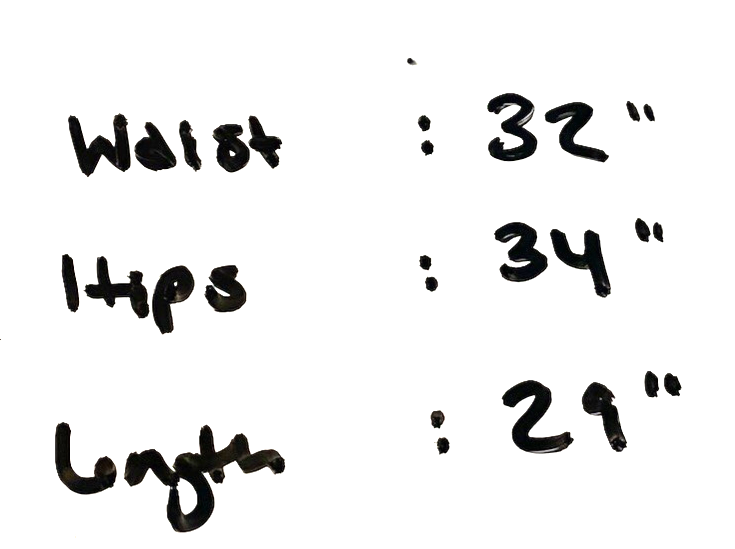 Waist : 32"
Hips : 34"
Length : 29"